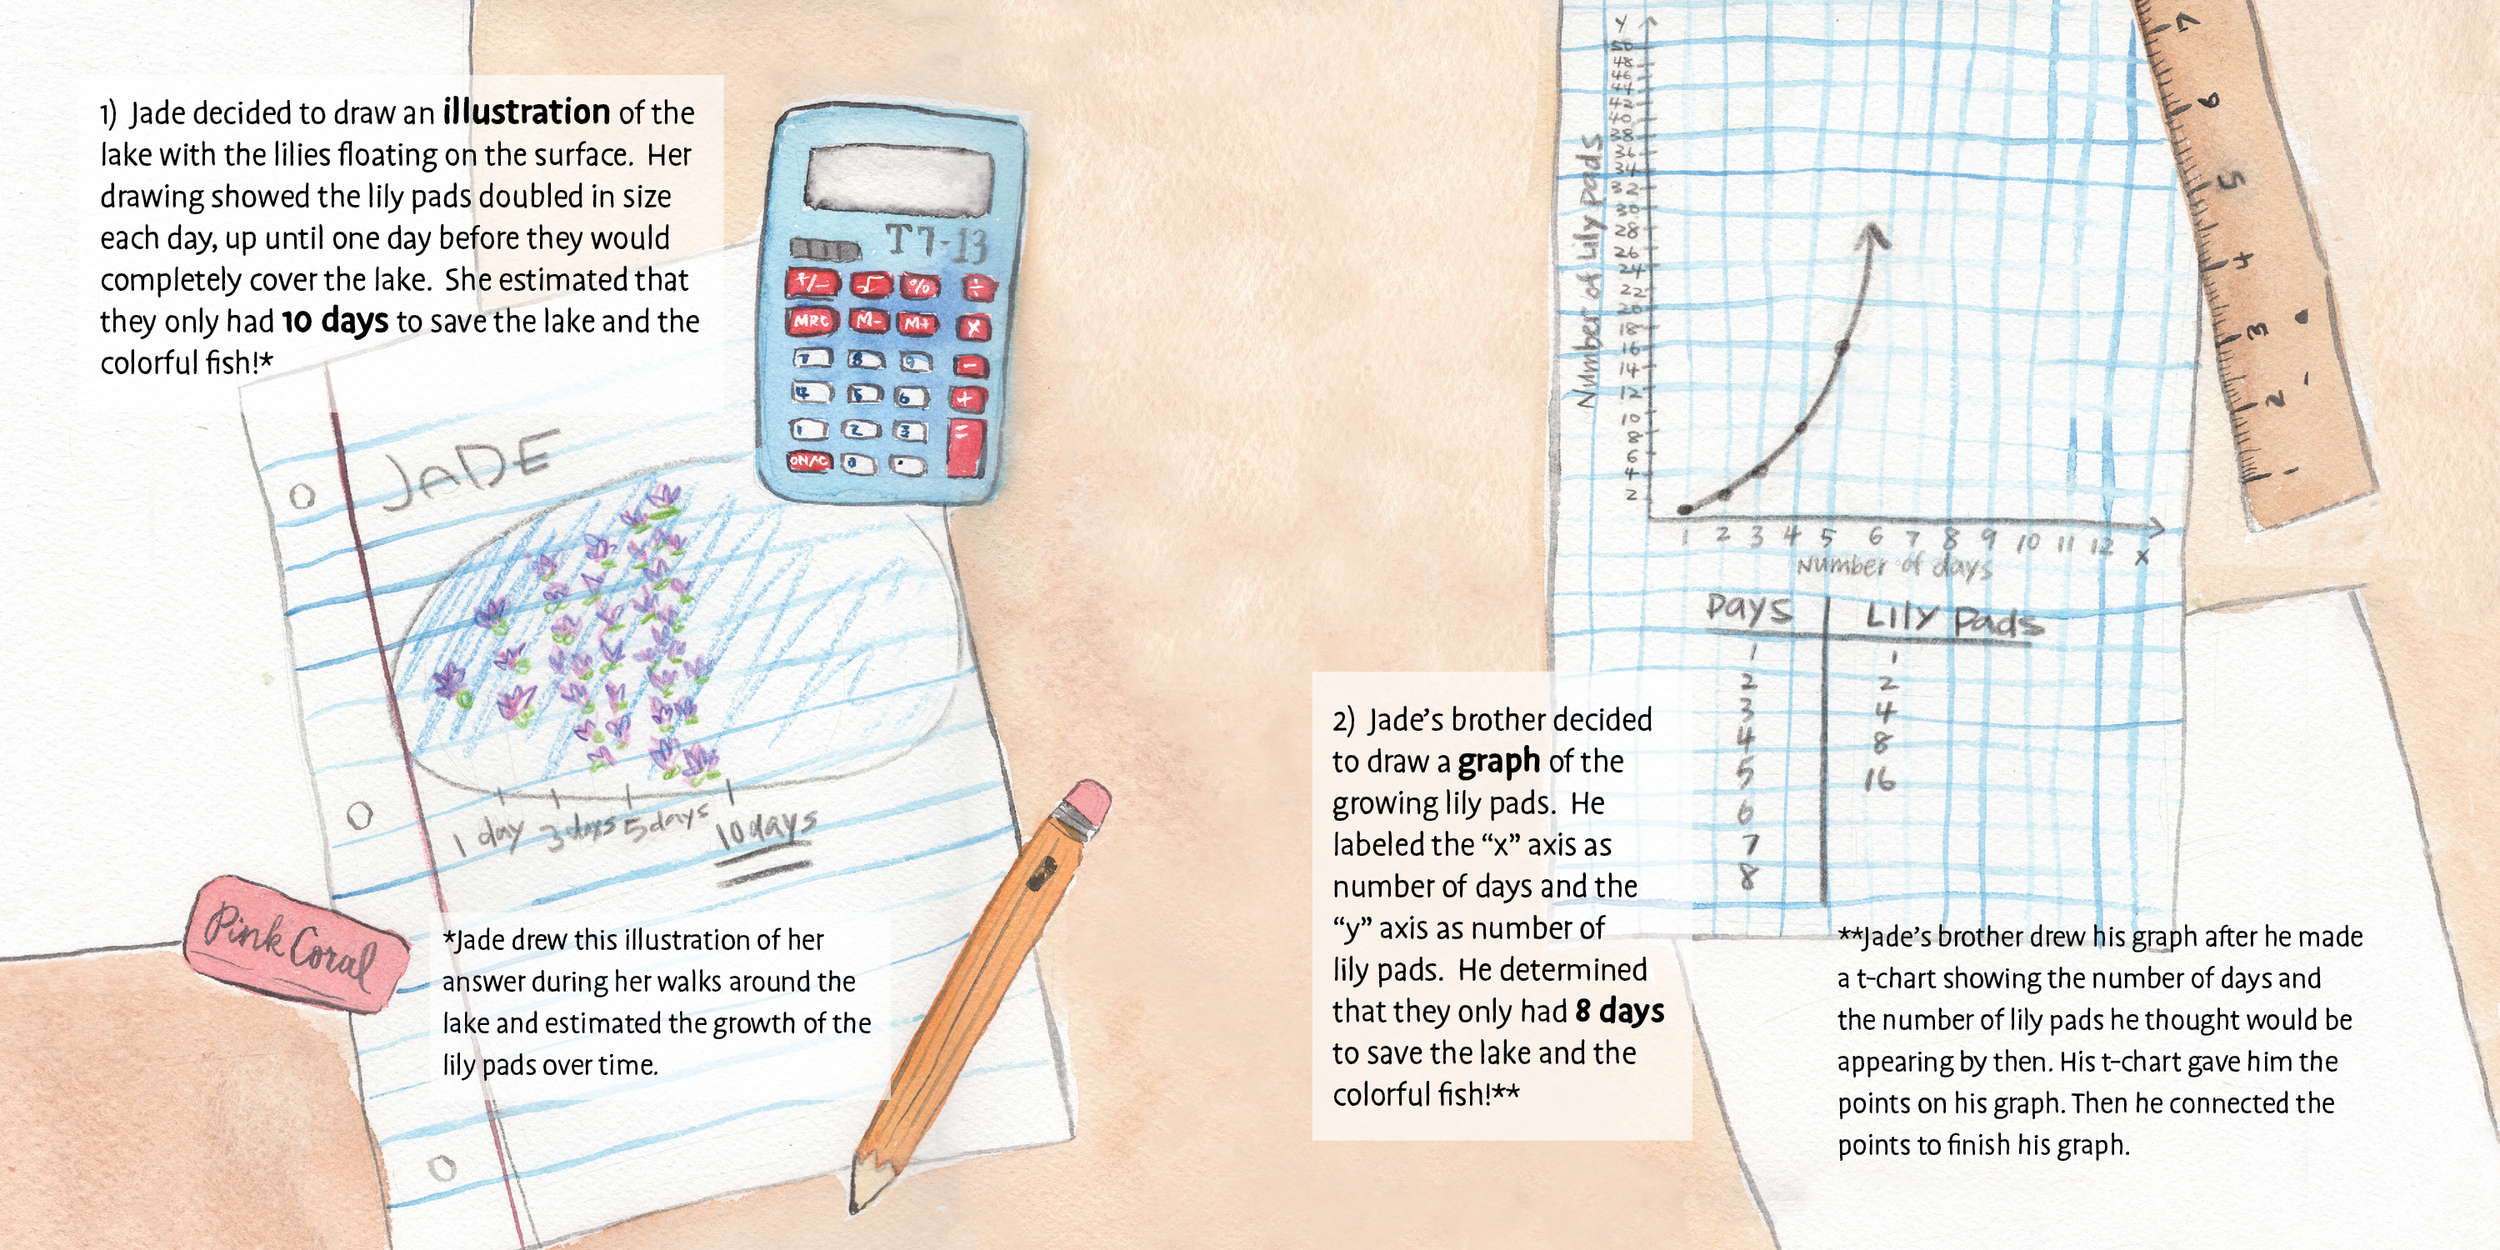 1) Jade decided to draw an illustration of the
lake with the lilies floating on the surface. Her
drawing showed the lily pads doubled in size
each day, up until one day before they would
completely cover the lake. She estimated that
they only had 10 days to save the lake and the
colorful fish!*
T7-13
+/- √ % ÷
MRC M- M+ X
7 8 9 -
4 5 6 +
1 2 3 =
ON/C 0 .
JADE
1 day 3 days 5 days 10 days
Pink Coral
*Jade drew this illustration of her
answer during her walks around the
lake and estimated the growth of the
lily pads over time.
Y
50
48
46
44
42
40
38
36
34
32
30
28
26
24
22
20
18
16
14
12
10
8
6
4
2
Number of Lily pads
1 2 3 4 5 6 7 8 9 10 11 12 X
Number of days
Days Lily Pads
1 1
2 2
3 4
4 8
5 16
6
7
8
7
6
5
4
3
2
1
2) Jade's brother decided
to draw a graph of the
growing lily pads. He
labeled the “x” axis as
number of days and the
“y” axis as number of
lily pads. He determined
that they only had 8 days
to save the lake and the
colorful fish!**
**Jade's brother drew his graph after he made
a t-chart showing the number of days and
the number of lily pads he thought would be
appearing by then. His t-chart gave him the
points on his graph. Then he connected the
points to finish his graph.